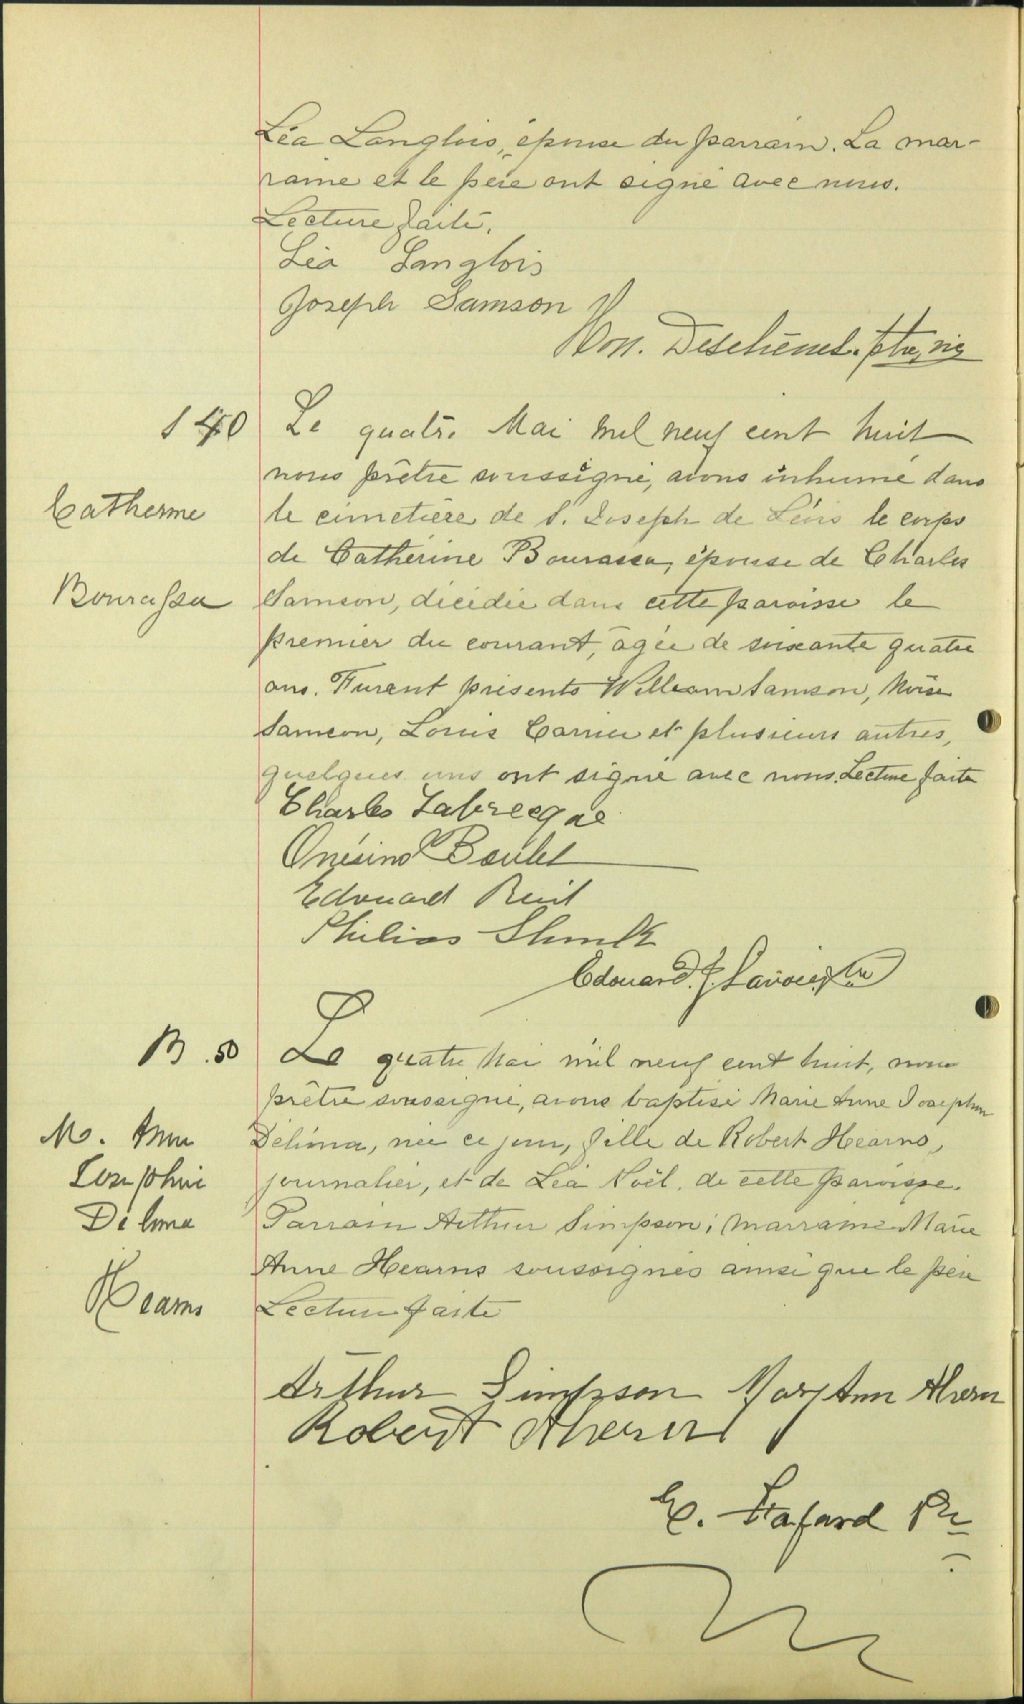 Léa Langlois, épouse du parrain. La mar-
raine et le père ont signé avec nous.
Lecture faite.
Léa Langlois
Joseph Samson
Hon. Deschênes. ptre, vic
S 40
Le quatre Mai mil neuf cent huit
nous prêtre soussigné, avons inhumé dans
Catherine
le cimetière de S. Joseph de Lévis le corps
de Catherine Bourassa, épouse de Charles
Bourassa
Samson, décédée dans cette paroisse le
premier du courant, âgée de soixante quatre
ans. Furent présents William Samson, Moïse
Samson, Louis Carrier et plusieurs autres,
quelques uns ont signé avec nous. Lecture faite
Charles Labrecque
Onésime Boulet
Edouard
Philias
Edouard. J. Lavoie, ptre
B. 50
Le quatre Mai mil neuf cent huit, nous
prêtre soussigné, avons baptisé Marie Anne Josephine
M. Anne
Délima, née ce jour, fille de Robert Hearns,
Josephine
journalier, et de Léa Noël, de cette paroisse.
Délima
Parrain Arthur Simpson; marraine Marie
Anne Hearns soussignés ainsi que le père
Hearns
Lecture faite
Arthur Simpson Mary Ann Ahern
Robert Ahern
E. Lafard Ptr